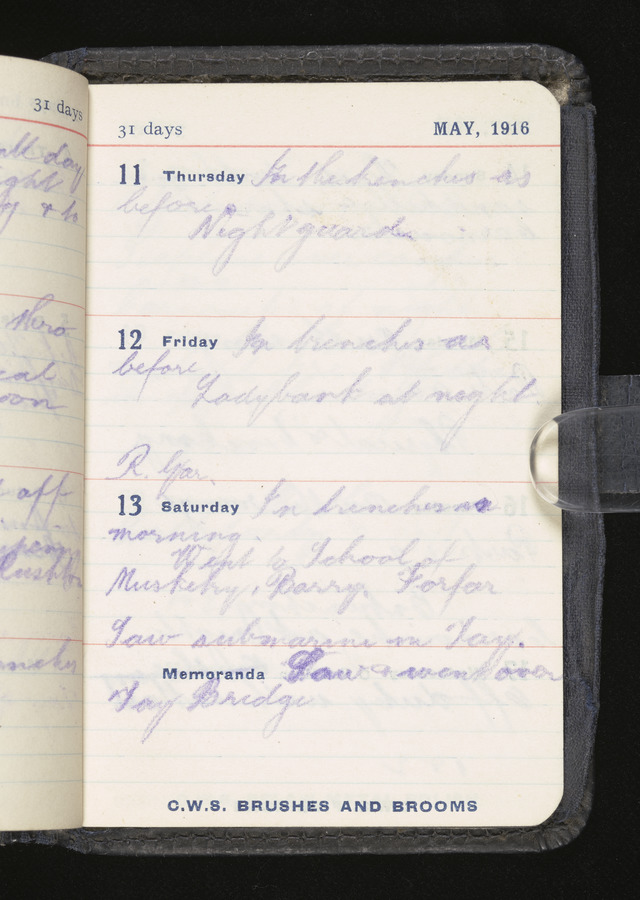 31 days
all day
ight
g & to
Thro
cal
oon
off
31 days MAY, 1916
11 Thursday In the trenches as
before.
Night guard.
12 Friday In trenches as
before
Ladybank at night.
R. Gar.
13 Saturday In trenches in
morning.
Went to School of
Musketry, Barry. Forfar
Saw submarine in Tay.
Memoranda Saw & went over
Tay Bridge
C.W.S. BRUSHES AND BROOMS